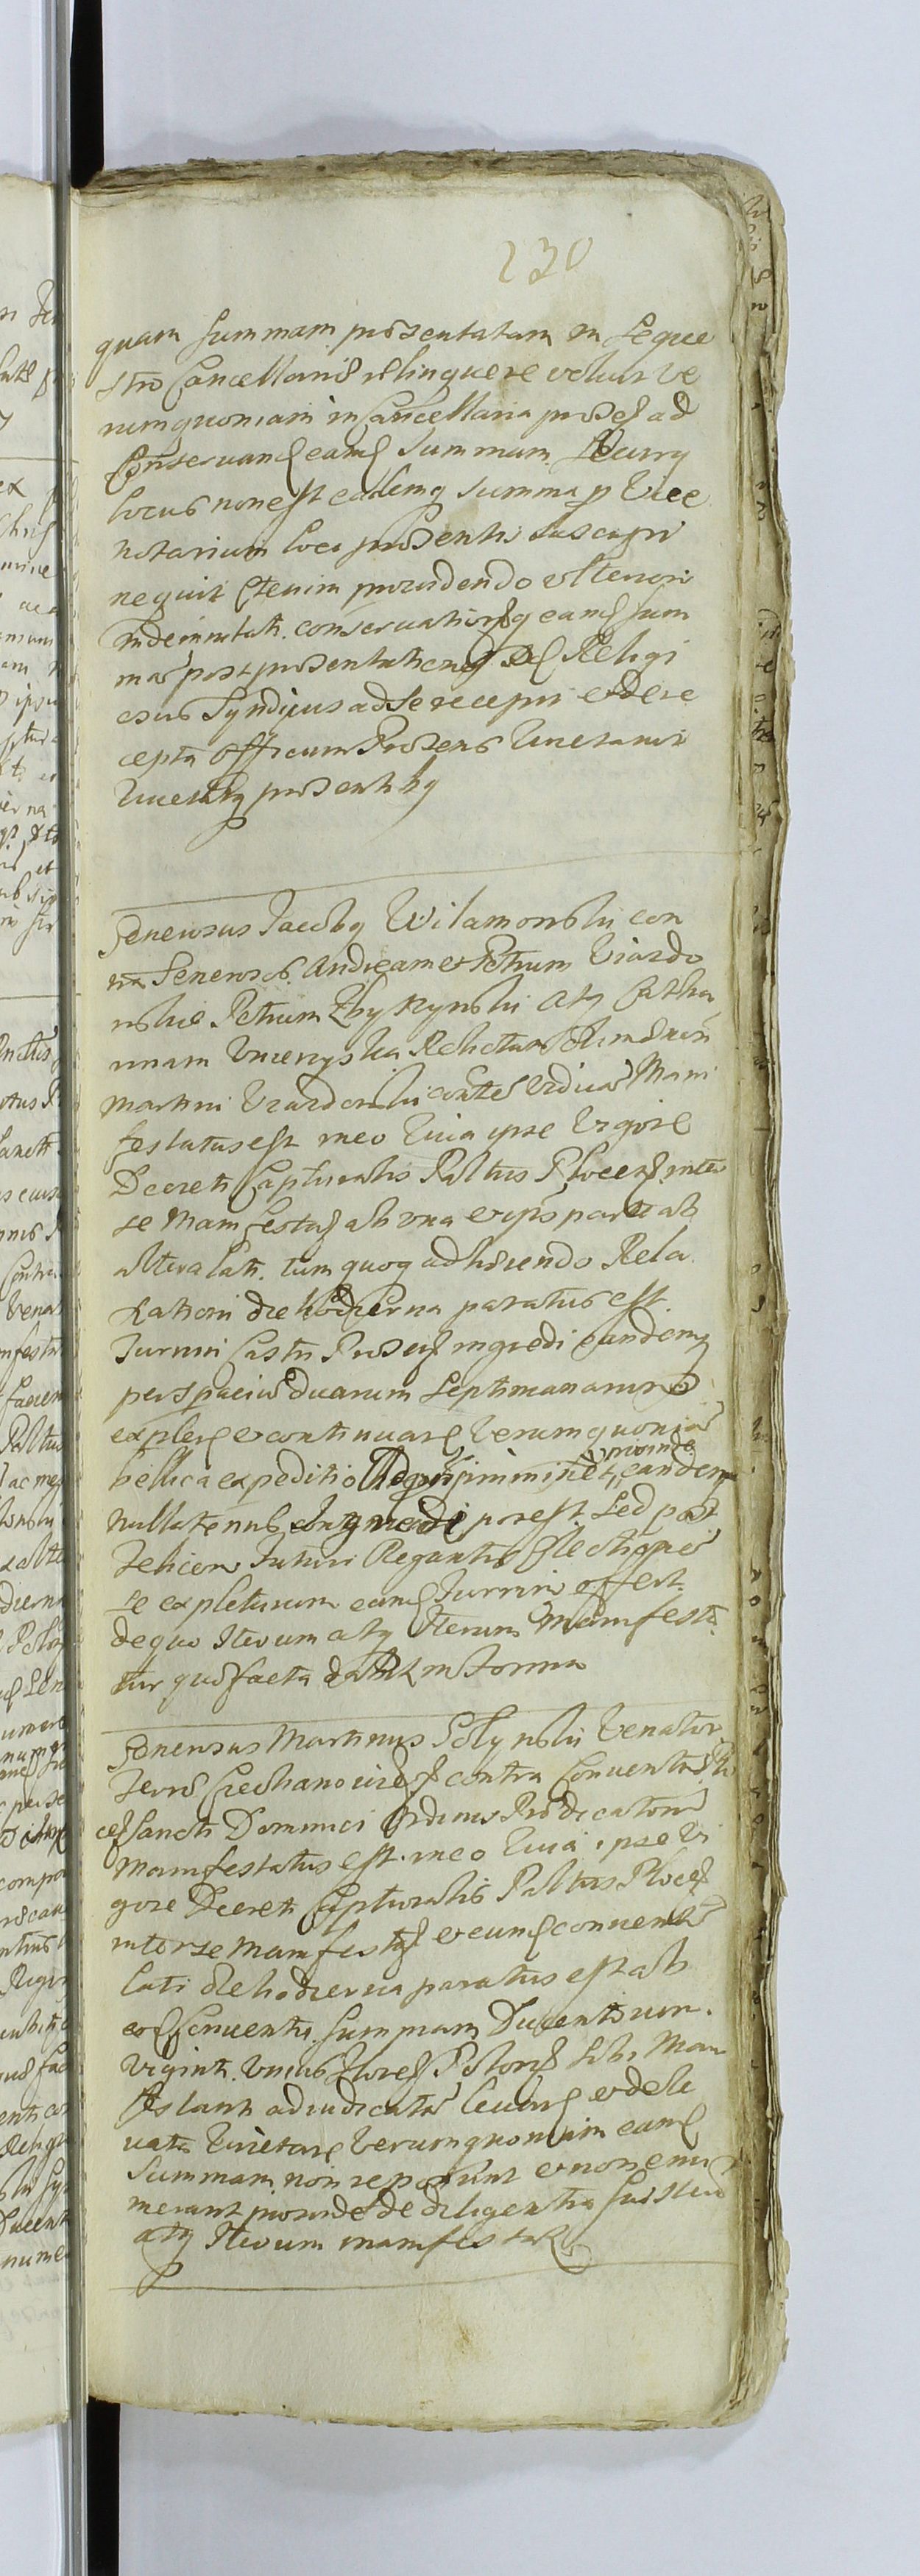 230
quam summam praesentatam in seque
stro Cancellariae relinquere voluit Ve
rumquoniam in Cancellaria praes ad
Conservand eand Summam Securus
locus non est eademq summa p Vice
notarium loci praesentis suscepi
nequit Etenim providendo ulteriori
Indemnitati conservationiq eand sum
mae post praesentationem Religi
osus Syndicus ad se recepit et de re
cepta officium Praesens quietavit
quietatq praesentibq
Generosus Jacobq Wilamowski con
tra Generosos Andream et Petrum Giardo
wskie Petrum Zbyszynski atq Catha
rinam Relictam olim Gnri
Martini consortem viduam Mani
festatus est in eo quia ipse Vigore
Decreti Capturalis Pallatus Plocen inter
se Manifestan ab una et ipsos parte ab
altera lati tum quoq adhaerendo Rela
xationi die hodierna paratus est
Turrim Castri Praesen ingredi eandemq
per spacium duarum Septimanarum
explere et continuare Verumquoniam
bellica expeditio imminet proinde eandem
nullatenus Ingredi potest sed post
felicem Futuri Regnantis Electionem
se expleturum eand Turrim offert
de quo Iterum atq Iterum Manifesta
tur quo facto datur in forma
Generosus Martinus Golynski Venator
Terrae Ciechanovien contra Conventum Plo
cen Sancti Dominici Ordinis Praedicatorum
Manifestatus est in eo quia ipse Vi
gore Decreti Capturalis Palatus Plocen
inter se Manifestan et eund conventum
lati die hodierna paratus est ab
eod Conventu Summam Ducentorum
Viginti Unius floren Polon sibi Mani
festanti adiudicatam levare et de le
vata quietare Verumquoniam eand
Summam non reponunt et non enu
merant proinde de diligentia sua Iterum
atq Iterum manifestatur